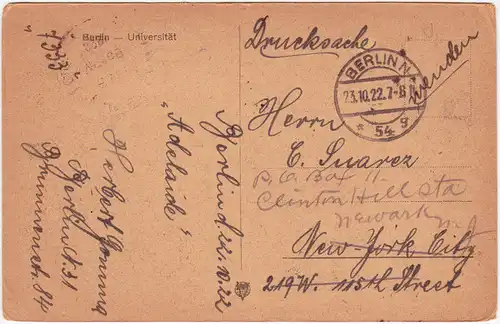 Berlin — Universität
Drucksache
wenden
BERLIN N.
23.10.22.7-8
* 54 g
Herrn
C. Suarez
P.O. Box 11.
Clinton Hill Sta
Newark
New York City
219 W. 115th Street
Berlin d. 22.X.22
"Adelaide"
Herbert
Berlin N 31
Brunnenstr. 84